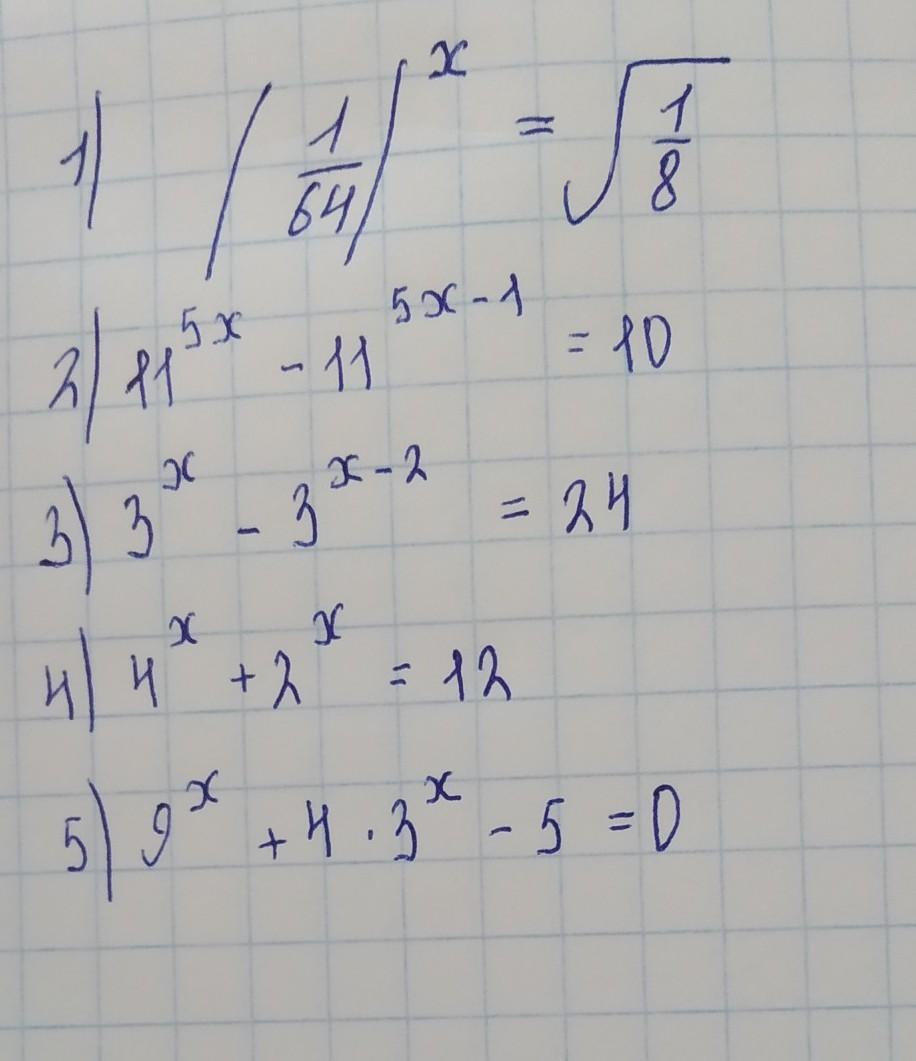 1) (1/64)^x = √(1/8)
2) 11^(5x) - 11^(5x-1) = 10
3) 3^x - 3^(x-2) = 24
4) 4^x + 2^x = 12
5) 9^x + 4 · 3^x - 5 = 0